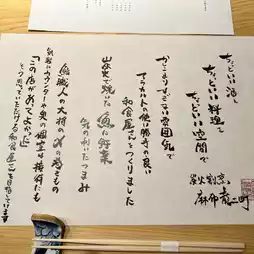 ちょどいい酒と
ちょどいい料理と
ちょどいい空間で
かしこまりすぎない雰囲気で
アラカルトの使い勝手の良い
和食屋さんをつくりました
炭火で焼いた魚に野菜
気の利いたつまみ
鮨職人の大将の〆の巻きもの
気軽にカウンターや奥の個室は接待にも
「この店があってよかった」
と思っていただける和食屋さんを目指しています
炭火割烹
麻布 龍二町